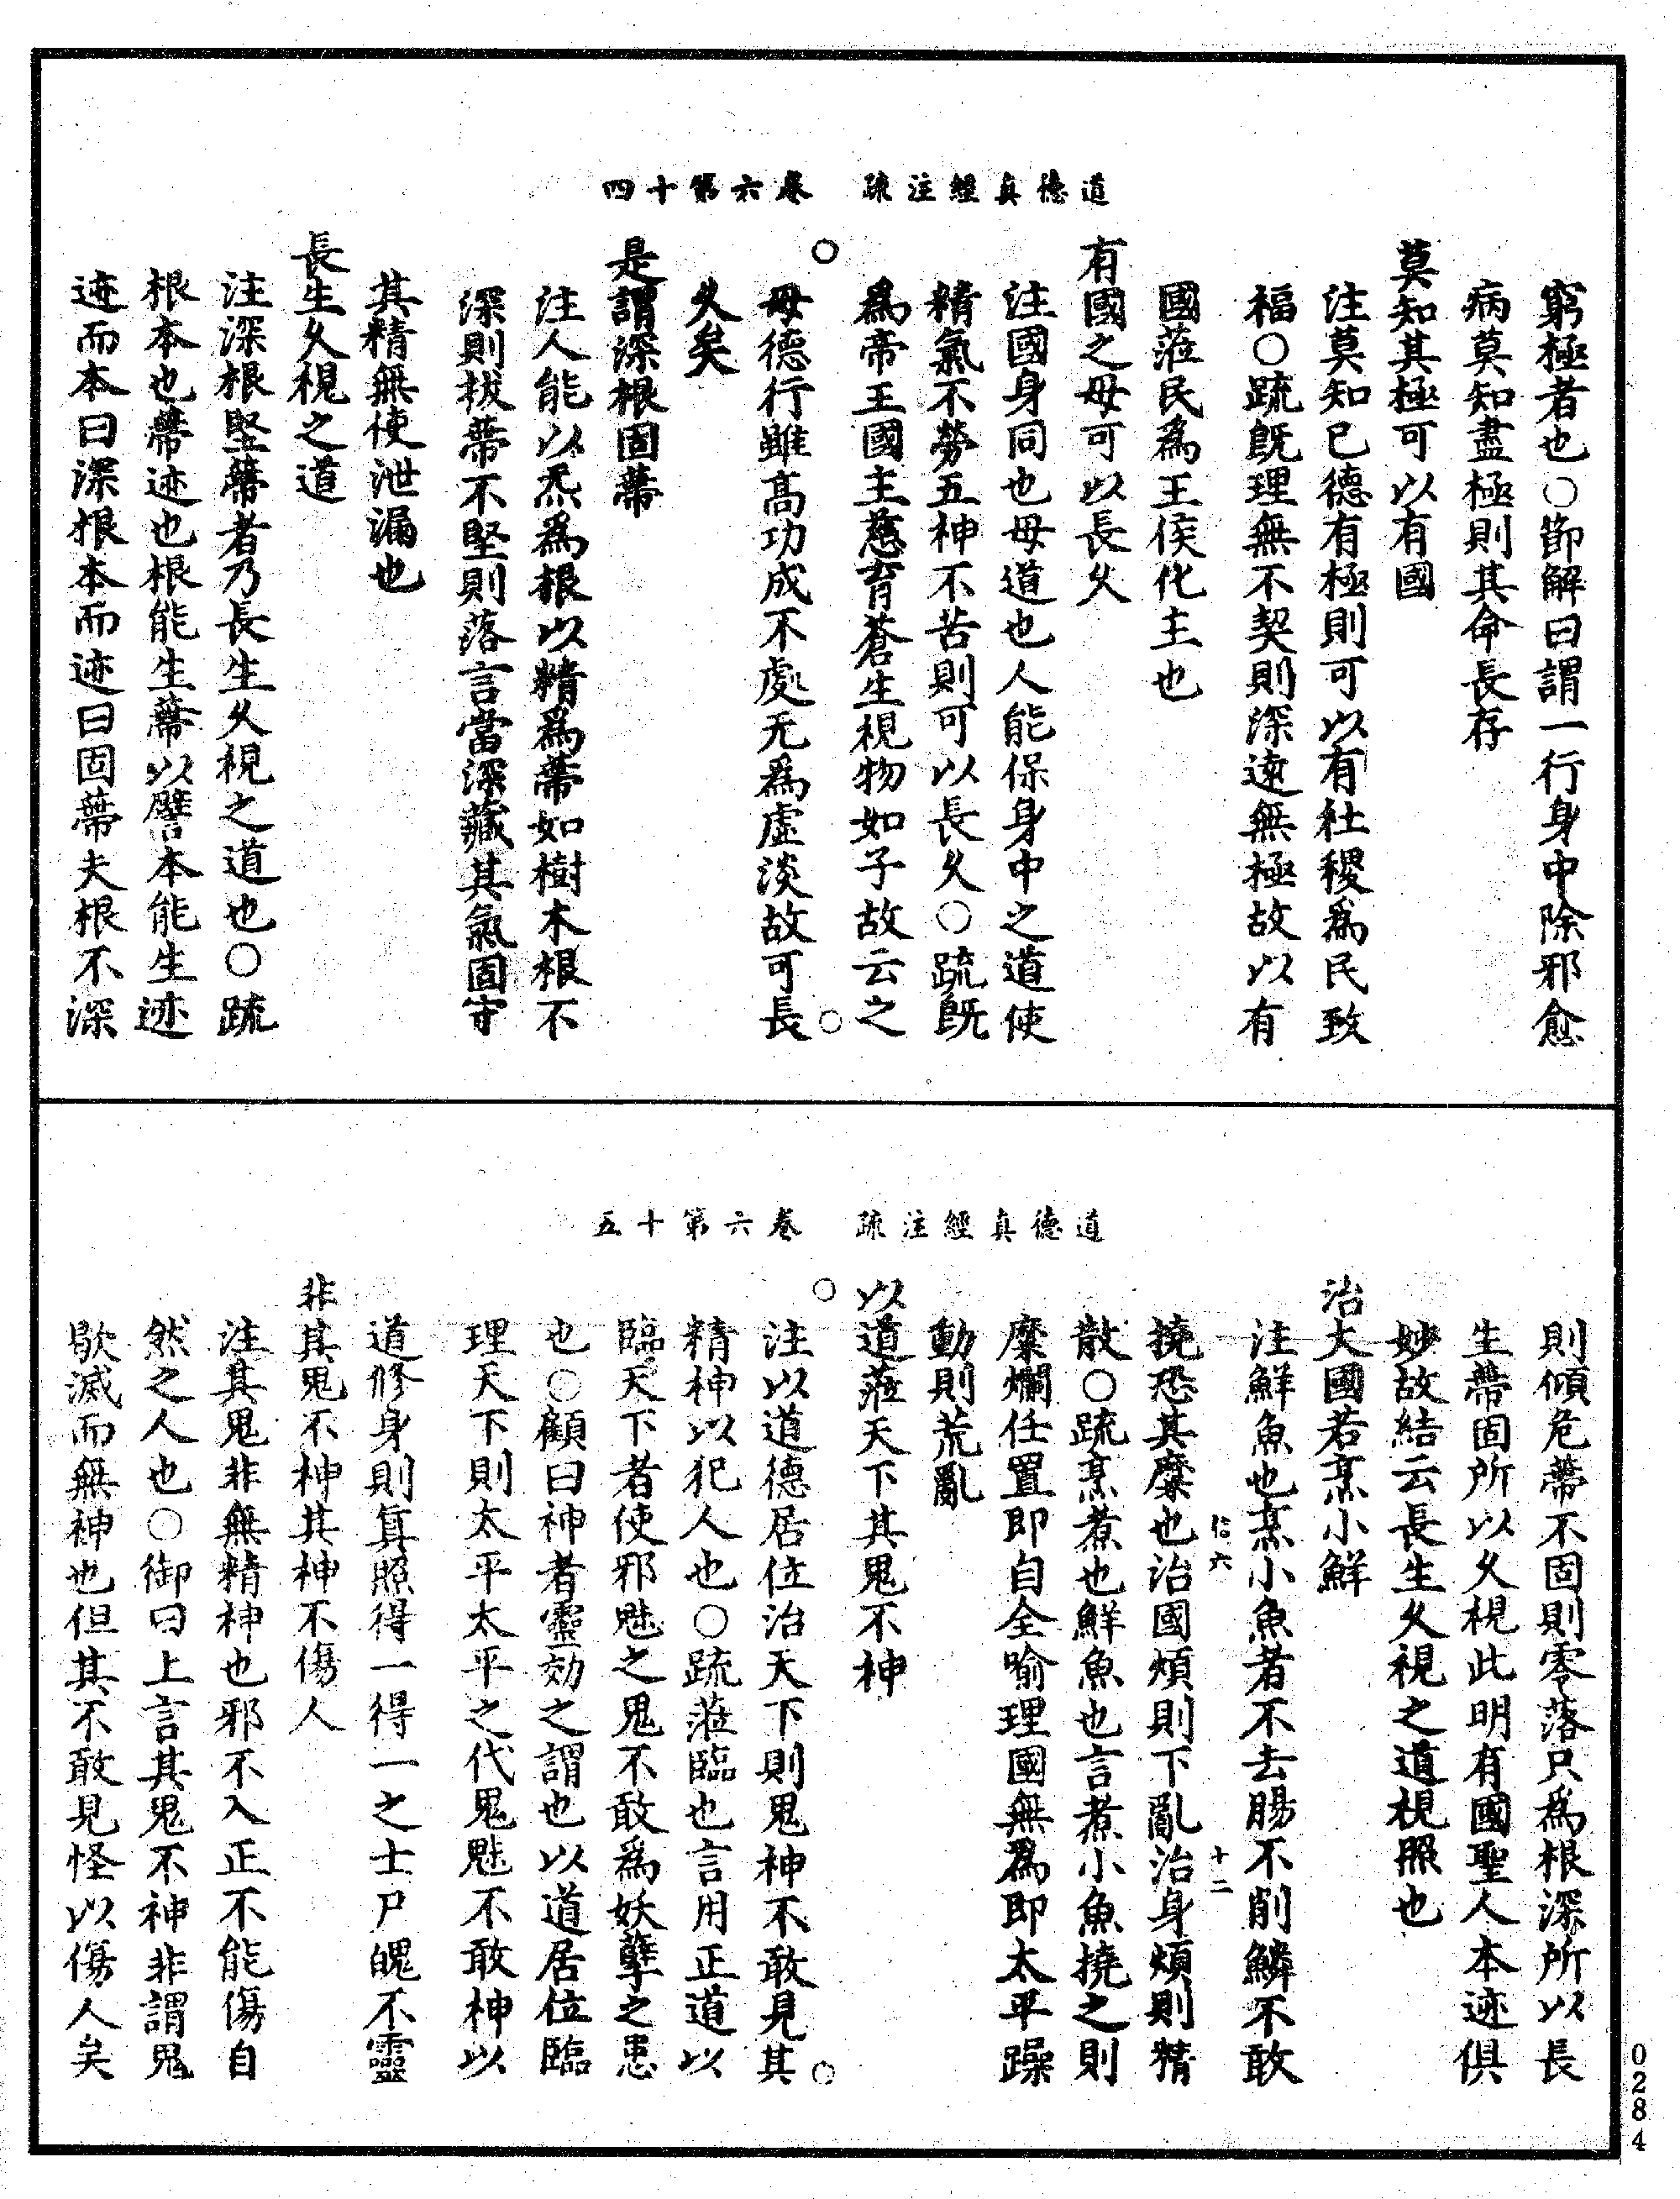 道德真經注疏　卷六第十四
窮極者也○節解曰謂一行身中除邪愈
病莫知盡極則其命長存
莫知其極可以有國
注莫知已德有極則可以有社稷爲民致
福○疏既理無不契則深遠無極故以有
國蒞民爲王侯化主也
有國之母可以長久
注國身同也母道也人能保身中之道使
精氣不勞五神不苦則可以長久○疏既
爲帝王國主慈育蒼生視物如子故云之
母德行雖高功成不處无爲虛淡故可長
久矣
是謂深根固蔕
注人能以炁爲根以精爲蔕如樹木根不
深則拔蔕不堅則落言當深藏其氣固守
其精無使泄漏也
長生久視之道
注深根堅蔕者乃長生久視之道也○疏
根本也蔕迹也根能生蔕以譬本能生迹
迹而本曰深根本而迹曰固蔕夫根不深
道德真經注疏　卷六第十五
則傾危蔕不固則零落只爲根深所以長
生蔕固所以久視此明有國聖人本迹俱
妙故結云長生久視之道視照也
治大國若烹小鮮
注鮮魚也烹小魚者不去腸不削鱗不敢
撓恐其糜也治國煩則下亂治身煩則精
散○疏烹煮也鮮魚也言煮小魚撓之則
糜爛任置即自全喻理國無爲即太平躁
動則荒亂
以道蒞天下其鬼不神
注以道德居位治天下則鬼神不敢見其
精神以犯人也○疏蒞臨也言用正道以
臨天下者使邪魅之鬼不敢爲妖孽之患
也○顧曰神者靈効之謂也以道居位臨
理天下則太平太平之代鬼魅不敢神以
道修身則真照得一得一之士尸魄不靈
非其鬼不神其神不傷人
注其鬼非無精神也邪不入正不能傷自
然之人也○御曰上言其鬼不神非謂鬼
歇滅而無神也但其不敢見怪以傷人矣
信六　十二
0284